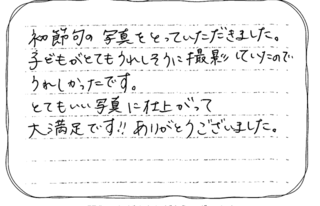 初節句の写真をとっていただきました。
子どもがとてもうれしそうに撮影していたので
うれしかったです。
とてもいい写真に仕上がって
大満足です!! ありがとうございました。